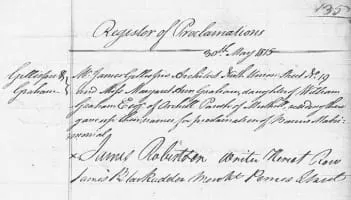 135
Register of Proclamations
30th May 1815
Gillespie & Graham
Mr James Gillespie Architect North Union Street No. 19
and Miss Margaret Ann Graham, daughter of William
Graham Esqr of Orchill Parish of Muthill, and day
gave up their names for proclamation of Banns Matri-
monial
x James Robertson Writer Row
James Blackadder Mercht Princes Street